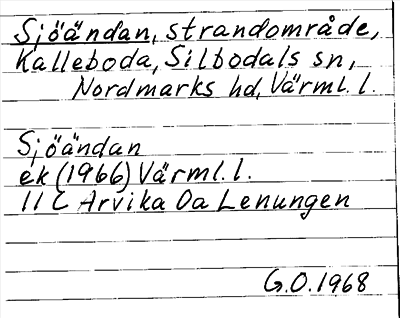 Sjöändan, strandområde,
Kalleboda, Silbodals sn,
Nordmarks hd, Värml. l.
Sjöändan
ek (1966) Värml. l.
11 C Arvika 0a Lenungen
G.O. 1968